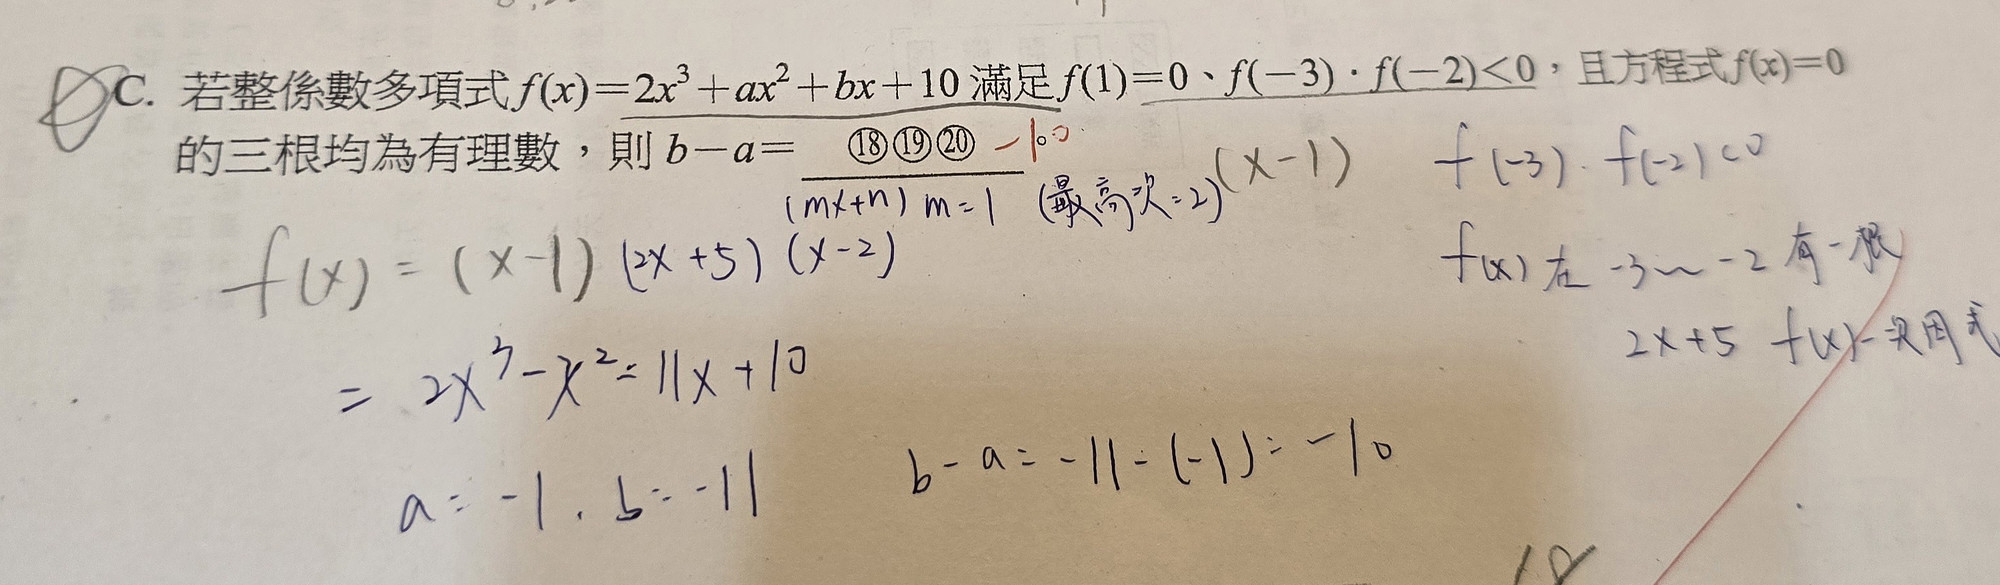 C. 若整係數多項式 f(x)=2x³+ax²+bx+10 滿足 f(1)=0、f(−3)·f(−2)<0，且方程式 f(x)=0
的三根均為有理數，則 b−a= ⑱⑲⑳ −10
(mx+n) m=1 (最高次=2) (x-1) f(-3)·f(-2)<0
f(x) = (x-1) (2x+5) (x-2)
f(x) 在 -3~-2 有一根
2x+5 f(x)一次因式
= 2x³-x²-11x+10
a=-1, b=-11
b-a=-11-(-1)=-10